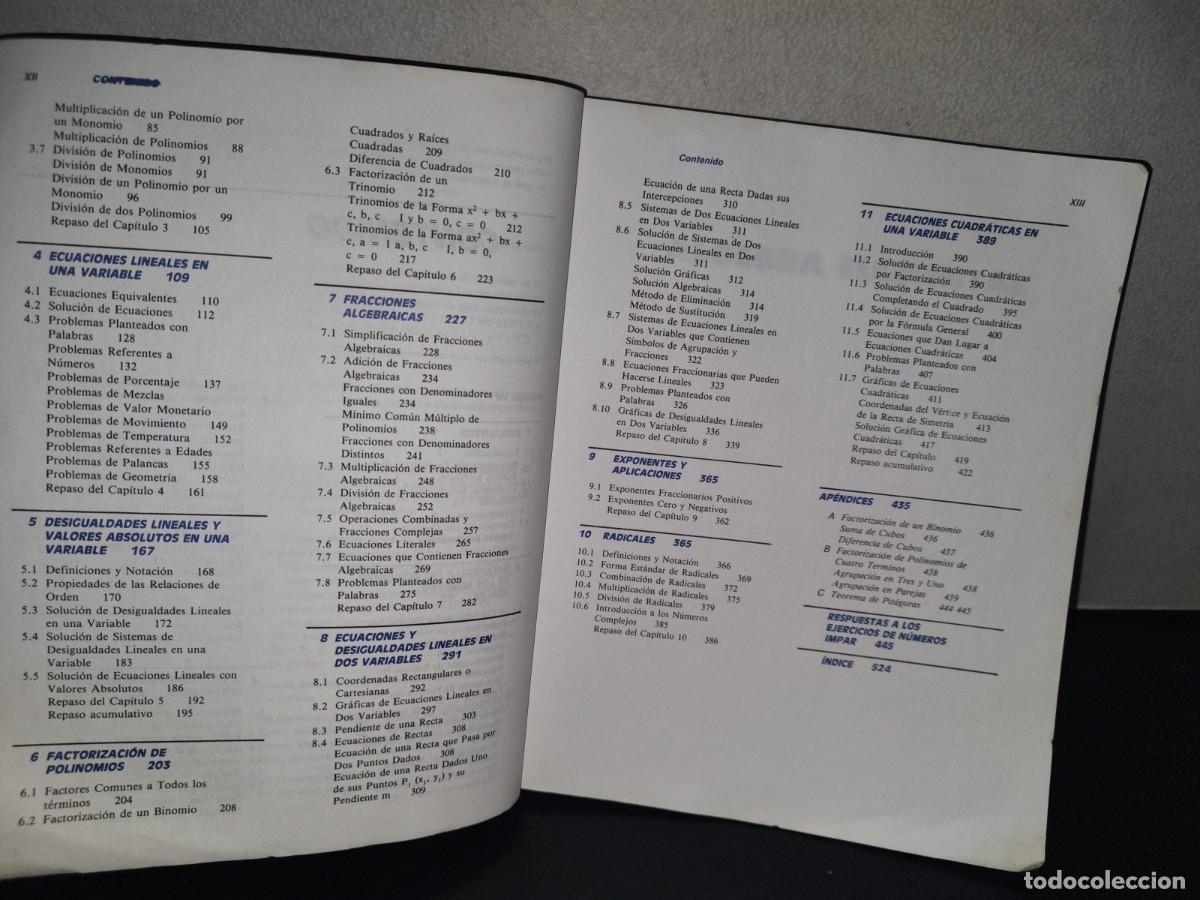 XII CONTENIDO
Multiplicación de un Polinomio por
un Monomio 85
Multiplicación de Polinomios 88
3.7 División de Polinomios 91
División de Monomios 91
División de un Polinomio por un
Monomio 96
División de dos Polinomios 99
Repaso del Capítulo 3 105
4 ECUACIONES LINEALES EN
UNA VARIABLE 109
4.1 Ecuaciones Equivalentes 110
4.2 Solución de Ecuaciones 112
4.3 Problemas Planteados con
Palabras 128
Problemas Referentes a
Números 132
Problemas de Porcentaje 137
Problemas de Mezclas
Problemas de Valor Monetario
Problemas de Movimiento 149
Problemas de Temperatura 152
Problemas Referentes a Edades
Problemas de Palancas 155
Problemas de Geometría 158
Repaso del Capítulo 4 161
5 DESIGUALDADES LINEALES Y
VALORES ABSOLUTOS EN UNA
VARIABLE 167
5.1 Definiciones y Notación 168
5.2 Propiedades de las Relaciones de
Orden 170
5.3 Solución de Desigualdades Lineales
en una Variable 172
5.4 Solución de Sistemas de
Desigualdades Lineales en una
Variable 183
5.5 Solución de Ecuaciones Lineales con
Valores Absolutos 186
Repaso del Capítulo 5 192
Repaso acumulativo 195
6 FACTORIZACIÓN DE
POLINOMIOS 203
6.1 Factores Comunes a Todos los
términos 204
6.2 Factorización de un Binomio 208
Cuadrados y Raíces
Cuadradas 209
Diferencia de Cuadrados 210
6.3 Factorización de un
Trinomio 212
Trinomios de la Forma x² + bx +
c, b, c I y b = 0, c = 0 212
Trinomios de la Forma ax² + bx +
c, a = 1 a, b, c I, b = 0,
c = 0 217
Repaso del Capítulo 6 223
7 FRACCIONES
ALGEBRAICAS 227
7.1 Simplificación de Fracciones
Algebraicas 228
7.2 Adición de Fracciones
Algebraicas 234
Fracciones con Denominadores
Iguales 234
Mínimo Común Múltiplo de
Polinomios 238
Fracciones con Denominadores
Distintos 241
7.3 Multiplicación de Fracciones
Algebraicas 248
7.4 División de Fracciones
Algebraicas 252
7.5 Operaciones Combinadas y
Fracciones Complejas 257
7.6 Ecuaciones Literales 265
7.7 Ecuaciones que Contienen Fracciones
Algebraicas 269
7.8 Problemas Planteados con
Palabras 275
Repaso del Capítulo 7 282
8 ECUACIONES Y
DESIGUALDADES LINEALES EN
DOS VARIABLES 291
8.1 Coordenadas Rectangulares o
Cartesianas 292
8.2 Gráficas de Ecuaciones Lineales en
Dos Variables 297
8.3 Pendiente de una Recta 303
8.4 Ecuaciones de Rectas 308
Ecuación de una Recta que Pasa por
Dos Puntos Dados 308
Ecuación de una Recta Dados Uno
de sus Puntos P₁ (x₁, y₁) y su
Pendiente m 309
Contenido XIII
Ecuación de una Recta Dadas sus
Intercepciones 310
8.5 Sistemas de Dos Ecuaciones Lineales
en Dos Variables 311
8.6 Solución de Sistemas de Dos
Ecuaciones Lineales en Dos
Variables 311
Solución Gráficas 312
Solución Algebraicas 314
Método de Eliminación 314
Método de Sustitución 319
8.7 Sistemas de Ecuaciones Lineales en
Dos Variables que Contienen
Símbolos de Agrupación y
Fracciones 322
8.8 Ecuaciones Fraccionarias que Pueden
Hacerse Lineales 323
8.9 Problemas Planteados con
Palabras 326
8.10 Gráficas de Desigualdades Lineales
en Dos Variables 336
Repaso del Capítulo 8 339
9 EXPONENTES Y
APLICACIONES 365
9.1 Exponentes Fraccionarios Positivos
9.2 Exponentes Cero y Negativos
Repaso del Capítulo 9 362
10 RADICALES 365
10.1 Definiciones y Notación 366
10.2 Forma Estándar de Radicales 369
10.3 Combinación de Radicales 372
10.4 Multiplicación de Radicales 375
10.5 División de Radicales 379
10.6 Introducción a los Números
Complejos 385
Repaso del Capítulo 10 386
11 ECUACIONES CUADRÁTICAS EN
UNA VARIABLE 389
11.1 Introducción 390
11.2 Solución de Ecuaciones Cuadráticas
por Factorización 390
11.3 Solución de Ecuaciones Cuadráticas
Completando el Cuadrado 395
11.4 Solución de Ecuaciones Cuadráticas
por la Fórmula General 400
11.5 Ecuaciones que Dan Lugar a
Ecuaciones Cuadráticas 404
11.6 Problemas Planteados con
Palabras 407
11.7 Gráficas de Ecuaciones
Cuadráticas 411
Coordenadas del Vértice y Ecuación
de la Recta de Simetría 413
Solución Gráfica de Ecuaciones
Cuadráticas 417
Repaso del Capítulo 419
Repaso acumulativo 422
APÉNDICES 435
A Factorización de un Binomio 436
Suma de Cubos 436
Diferencia de Cubos 437
B Factorización de Polinomios de
Cuatro Terminos 438
Agrupación en Tres y Uno 438
Agrupación en Parejas 439
C Teorema de Pitágoras 444 445
RESPUESTAS A LOS
EJERCICIOS DE NÚMEROS
IMPAR 445
ÍNDICE 524
todocoleccion